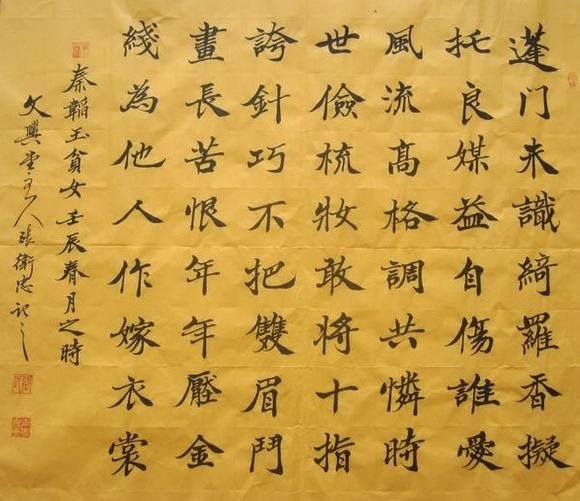 蓬门未識綺羅香擬
托良媒益自傷誰愛
風流高格調共憐時
世儉梳妝敢将十指
誇針巧不把雙眉鬥
畫長苦恨年年壓金
綫為他人作嫁衣裳
秦韜玉貧女壬辰春月之時
文興堂主人張衛忠記之